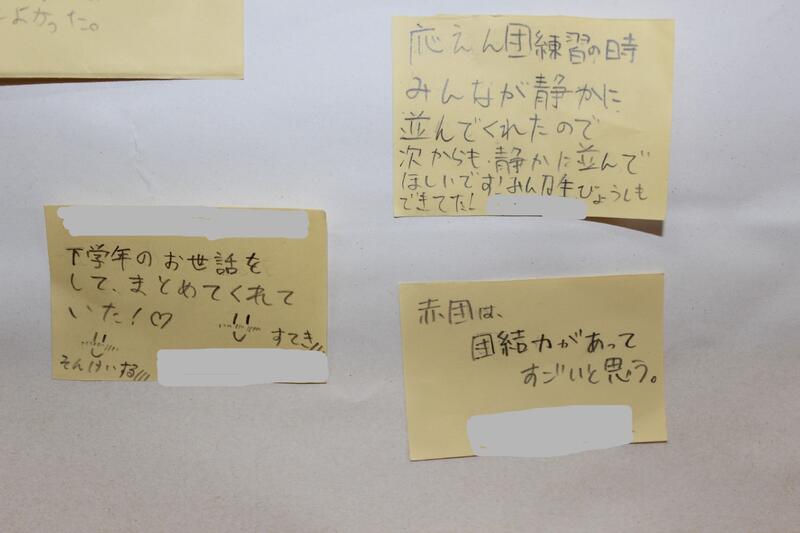 よかった。
応えん団練習の日時
みんなが静かに
並んでくれたので
次からも静かに並んで
ほしいです!みんな手びょうしも
できてた!
下学年のお世話を
して、まとめてくれて
いた!♡
すてき
そんけいする
赤団は、
団結力があって
すごいと思う。